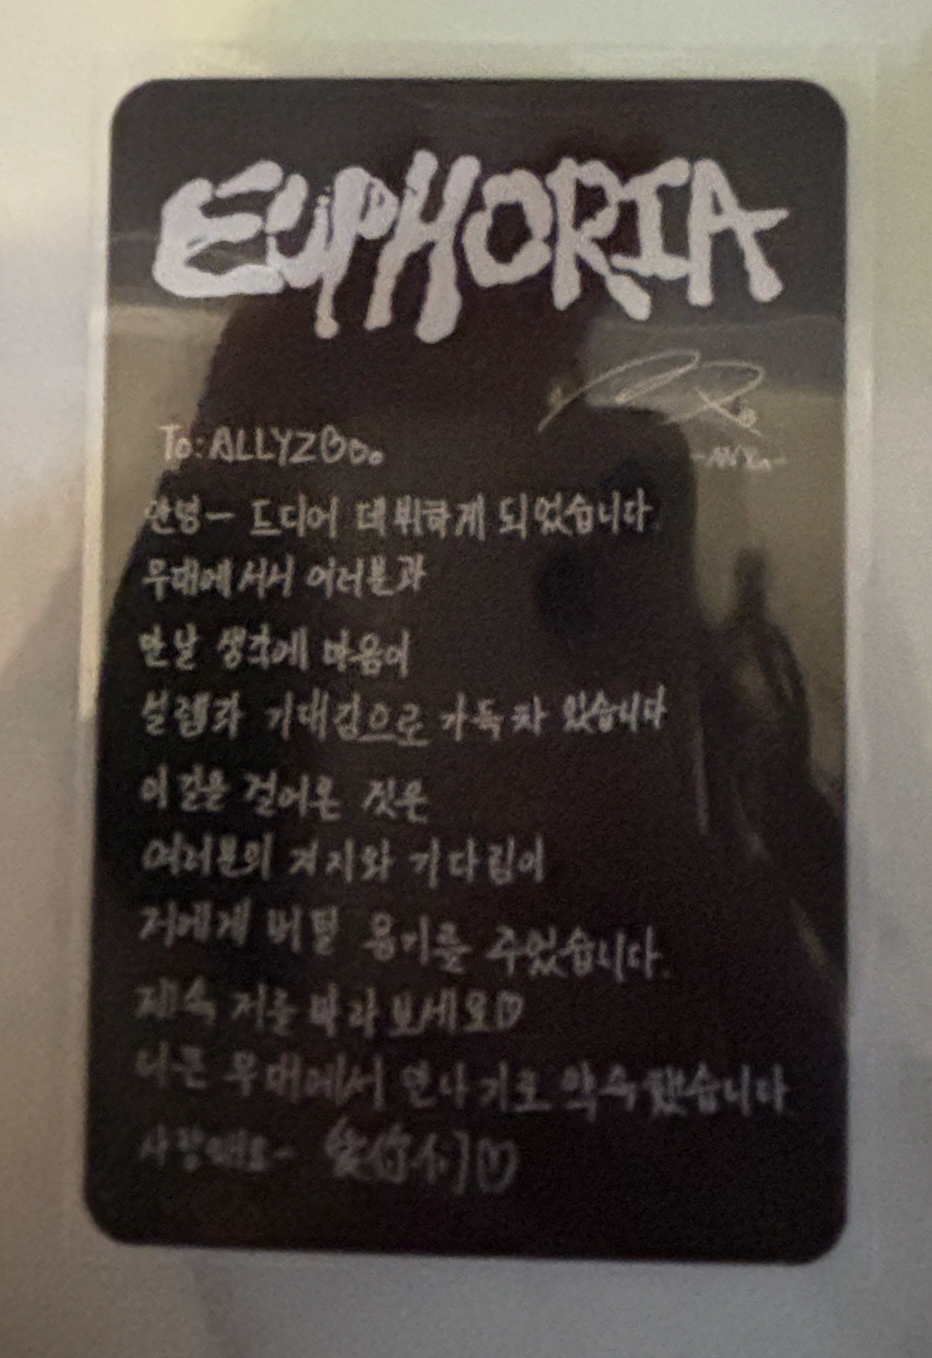 EUPHORIA
-ANXIN-
To: ALLYZ♡o。
안녕ー 드디어 데뷔하게 되었습니다.
무대에 서서 여러분과
만날 생각에 마음이
설렘과 기대감으로 가득 차 있습니다
이 길을 걸어온 것은
여러분의 지지와 기다림이
저에게 버틸 용기를 주었습니다.
계속 저를 봐라보세요♡
더큰 무대에서 만나기로 약속했습니다
사랑해요~ 爱你们♡